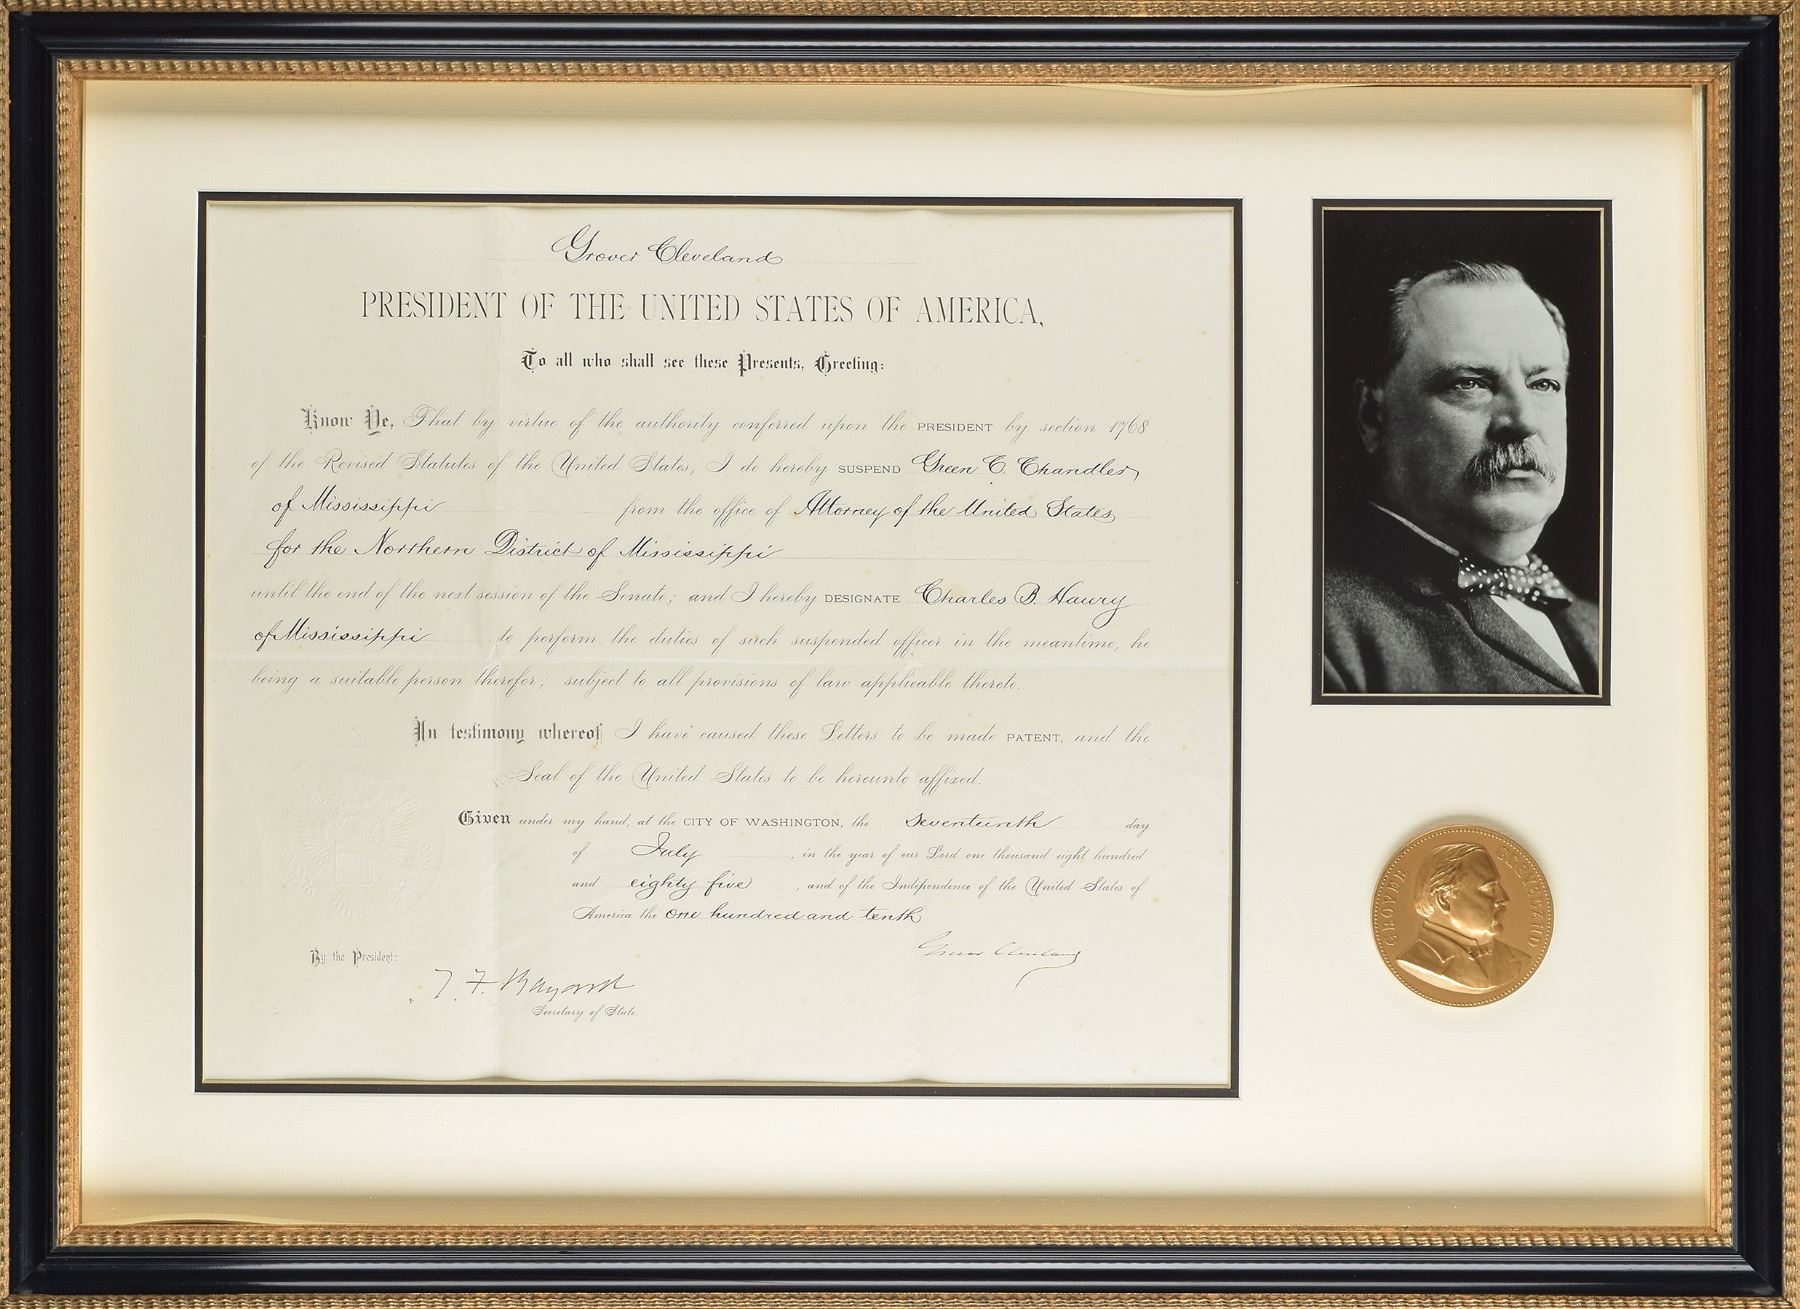 Grover Cleveland
PRESIDENT OF THE UNITED STATES OF AMERICA,
To all who shall see these Presents, Greeting:
Know Ye, That by virtue of the authority conferred upon the PRESIDENT by section 1768
of the Revised Statutes of the United States, I do hereby SUSPEND Green C. Chandler,
of Mississippi from the office of Attorney of the United States
for the Northern District of Mississippi
until the end of the next session of the Senate; and I hereby DESIGNATE Charles B. Howry
of Mississippi to perform the duties of such suspended officer in the meantime, he
being a suitable person therefor; subject to all provisions of law applicable thereto.
In testimony whereof I have caused these Letters to be made PATENT, and the
Seal of the United States to be hereunto affixed.
Given under my hand, at the CITY OF WASHINGTON, the seventeenth day
of July, in the year of our Lord one thousand eight hundred
and eighty five, and of the Independence of the United States of
America the one hundred and tenth
Grover Cleveland
By the President:
T. F. Bayard
Secretary of State.
GROVER CLEVELAND